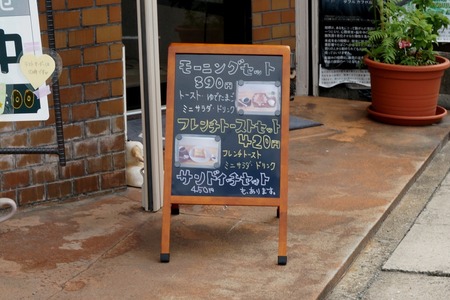 モーニングセット
390円
トースト ゆでたまご
ミニサラダ ドリンク
フレンチトーストセット
420円
フレンチトースト
ミニサラダ ドリンク
サンドイッチセット
450円 も、あります。
中